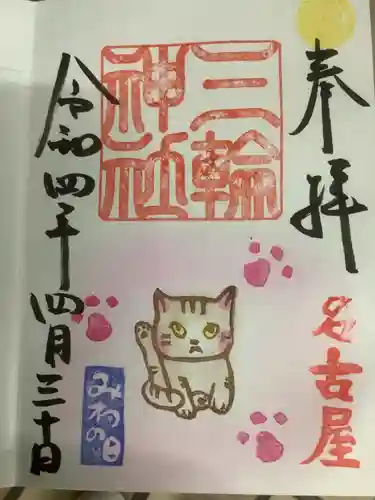 奉拝
三輪
神社
名古屋
令和四年四月三十日
みわの日